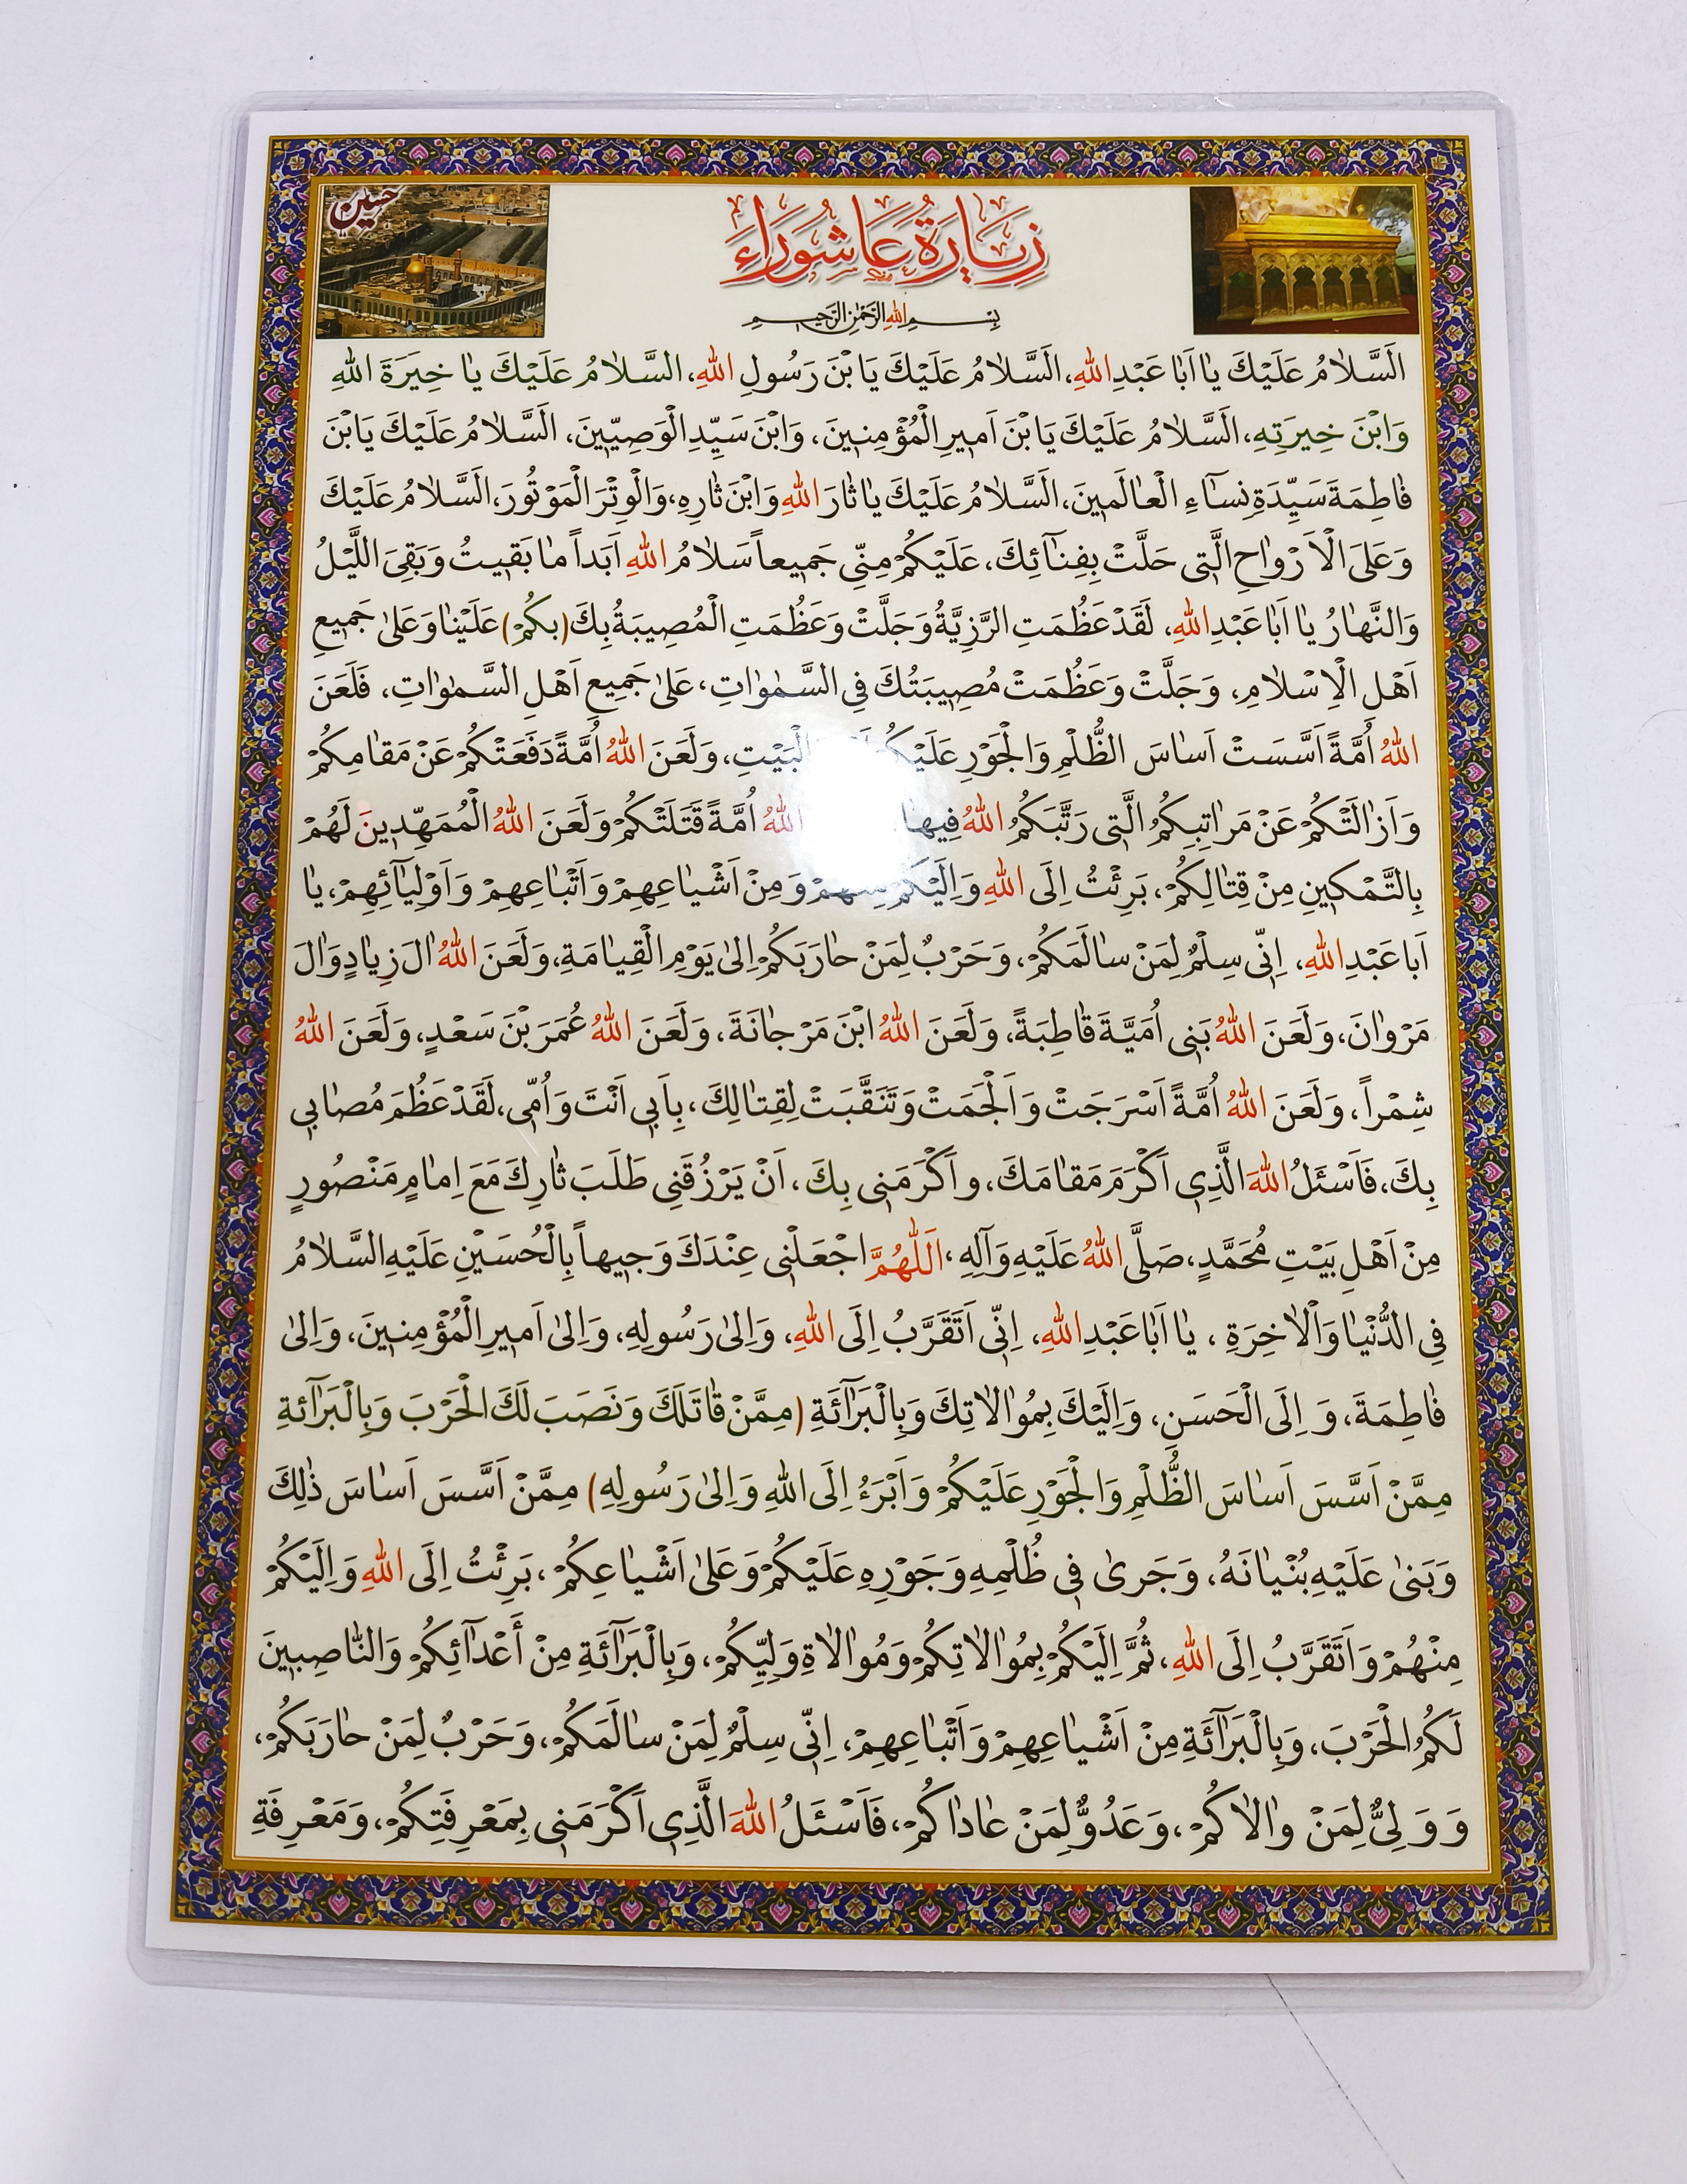 حسین
زِيَارَةُ عَاشُورَاءَ
بِسْمِ اللهِ الرَّحْمٰنِ الرَّحِيمِ
اَلسَّلامُ عَلَيْكَ يا اَبا عَبْدِ اللهِ، اَلسَّلامُ عَلَيْكَ يَا بْنَ رَسُولِ اللهِ، اَلسَّلامُ عَلَيْكَ يا خِيَرَةَ اللهِ
وَابْنَ خِيرَتِهِ، اَلسَّلامُ عَلَيْكَ يَا بْنَ اَميرِ الْمُؤْمِنينَ، وَابْنَ سَيِّدِ الْوَصِيّينَ، اَلسَّلامُ عَلَيْكَ يَابْنَ
فاطِمَةَ سَيِّدَةِ نِسآءِ الْعالَمينَ، اَلسَّلامُ عَلَيْكَ يا ثارَ اللهِ وَابْنَ ثارِهِ، وَالْوِتْرَ الْمَوْتُورَ، اَلسَّلامُ عَلَيْكَ
وَعَلَى الْاَرْواحِ الَّتى حَلَّتْ بِفِنآئِكَ، عَلَيْكُمْ مِنّى جَميعاً سَلامُ اللهِ اَبَداً ما بَقيتُ وَبَقِىَ اللَّيْلُ
وَالنَّهارُ يا اَبا عَبْدِ اللهِ، لَقَدْ عَظُمَتِ الرَّزِيَّةُ وَجَلَّتْ وَعَظُمَتِ الْمُصيبَةُ بِكَ (بِكُمْ) عَلَيْنا وَعَلىٰ جَميعِ
اَهْلِ الْاِسْلامِ، وَجَلَّتْ وَعَظُمَتْ مُصيبَتُكَ فِى السَّمٰواتِ، عَلىٰ جَميعِ اَهْلِ السَّمٰواتِ، فَلَعَنَ
اللهُ اُمَّةً اَسَّسَتْ اَساسَ الظُّلْمِ وَالْجَوْرِ عَلَيْكُمْ الْبَيْتِ، وَلَعَنَ اللهُ اُمَّةً دَفَعَتْكُمْ عَنْ مَقامِكُمْ
وَاَزالَتْكُمْ عَنْ مَراتِبِكُمُ الَّتى رَتَّبَكُمُ اللهُ فيها اللهُ اُمَّةً قَتَلَتْكُمْ وَلَعَنَ اللهُ الْمُمَهِّدينَ لَهُمْ
بِالتَّمْكينِ مِنْ قِتالِكُمْ، بَرِئْتُ اِلَى اللهِ وَاِلَيْكُمْ مِنْهُمْ وَمِنْ اَشْياعِهِمْ وَاَتْباعِهِمْ وَاَوْلِيآئِهِمْ، يا
اَبا عَبْدِ اللهِ، اِنّى سِلْمٌ لِمَنْ سالَمَكُمْ، وَحَرْبٌ لِمَنْ حارَبَكُمْ اِلىٰ يَوْمِ الْقِيامَةِ، وَلَعَنَ اللهُ الَ زِيادٍ وَالَ
مَرْوانَ، وَلَعَنَ اللهُ بَنى اُمَيَّةَ قاطِبَةً، وَلَعَنَ اللهُ ابْنَ مَرْجانَةَ، وَلَعَنَ اللهُ عُمَرَ بْنَ سَعْدٍ، وَلَعَنَ اللهُ
شِمْراً، وَلَعَنَ اللهُ اُمَّةً اَسْرَجَتْ وَاَلْجَمَتْ وَتَنَقَّبَتْ لِقِتالِكَ، بِاَبى اَنْتَ وَاُمّى، لَقَدْ عَظُمَ مُصابى
بِكَ، فَاَسْئَلُ اللهَ الَّذى اَكْرَمَ مَقامَكَ، و اَكْرَمَنى بِكَ، اَنْ يَرْزُقَنى طَلَبَ ثارِكَ مَعَ اِمامٍ مَنْصُورٍ
مِنْ اَهْلِ بَيْتِ مُحَمَّدٍ، صَلَّى اللهُ عَلَيْهِ وَآلِهِ، اَللّٰهُمَّ اجْعَلْنى عِنْدَكَ وَجيهاً بِالْحُسَيْنِ عَلَيْهِ السَّلامُ
فِى الدُّنْيا وَالْاخِرَةِ، يا اَبا عَبْدِ اللهِ، اِنّى اَتَقَرَّبُ اِلَى اللهِ، وَاِلىٰ رَسُولِهِ، وَاِلىٰ اَميرِ الْمُؤْمِنينَ، وَاِلىٰ
فاطِمَةَ، وَ اِلَى الْحَسَنِ، وَاِلَيْكَ بِمُوالاتِكَ وَبِالْبَرآئَةِ (مِمَّنْ قاتَلَكَ وَنَصَبَ لَكَ الْحَرْبَ وَبِالْبَرآئَةِ
مِمَّنْ اَسَّسَ اَساسَ الظُّلْمِ وَالْجَوْرِ عَلَيْكُمْ وَاَبْرَءُ اِلَى اللهِ وَاِلىٰ رَسُولِهِ) مِمَّنْ اَسَّسَ اَساسَ ذٰلِكَ
وَبَنىٰ عَلَيْهِ بُنْيانَهُ، وَجَرىٰ فى ظُلْمِهِ وَجَوْرِهِ عَلَيْكُمْ وَعَلىٰ اَشْياعِكُمْ، بَرِئْتُ اِلَى اللهِ وَاِلَيْكُمْ
مِنْهُمْ وَاَتَقَرَّبُ اِلَى اللهِ، ثُمَّ اِلَيْكُمْ بِمُوالاتِكُمْ وَمُوالاةِ وَلِيِّكُمْ، وَبِالْبَرآئَةِ مِنْ أَعْدآئِكُمْ وَالنّاصِبينَ
لَكُمُ الْحَرْبَ، وَبِالْبَرآئَةِ مِنْ اَشْياعِهِمْ وَاَتْباعِهِمْ، اِنّى سِلْمٌ لِمَنْ سالَمَكُمْ، وَحَرْبٌ لِمَنْ حارَبَكُمْ،
وَوَلِىٌّ لِمَنْ والاكُمْ، وَعَدُوٌّ لِمَنْ عاداكُمْ، فَاَسْئَلُ اللهَ الَّذى اَكْرَمَنى بِمَعْرِفَتِكُمْ، وَمَعْرِفَةِ